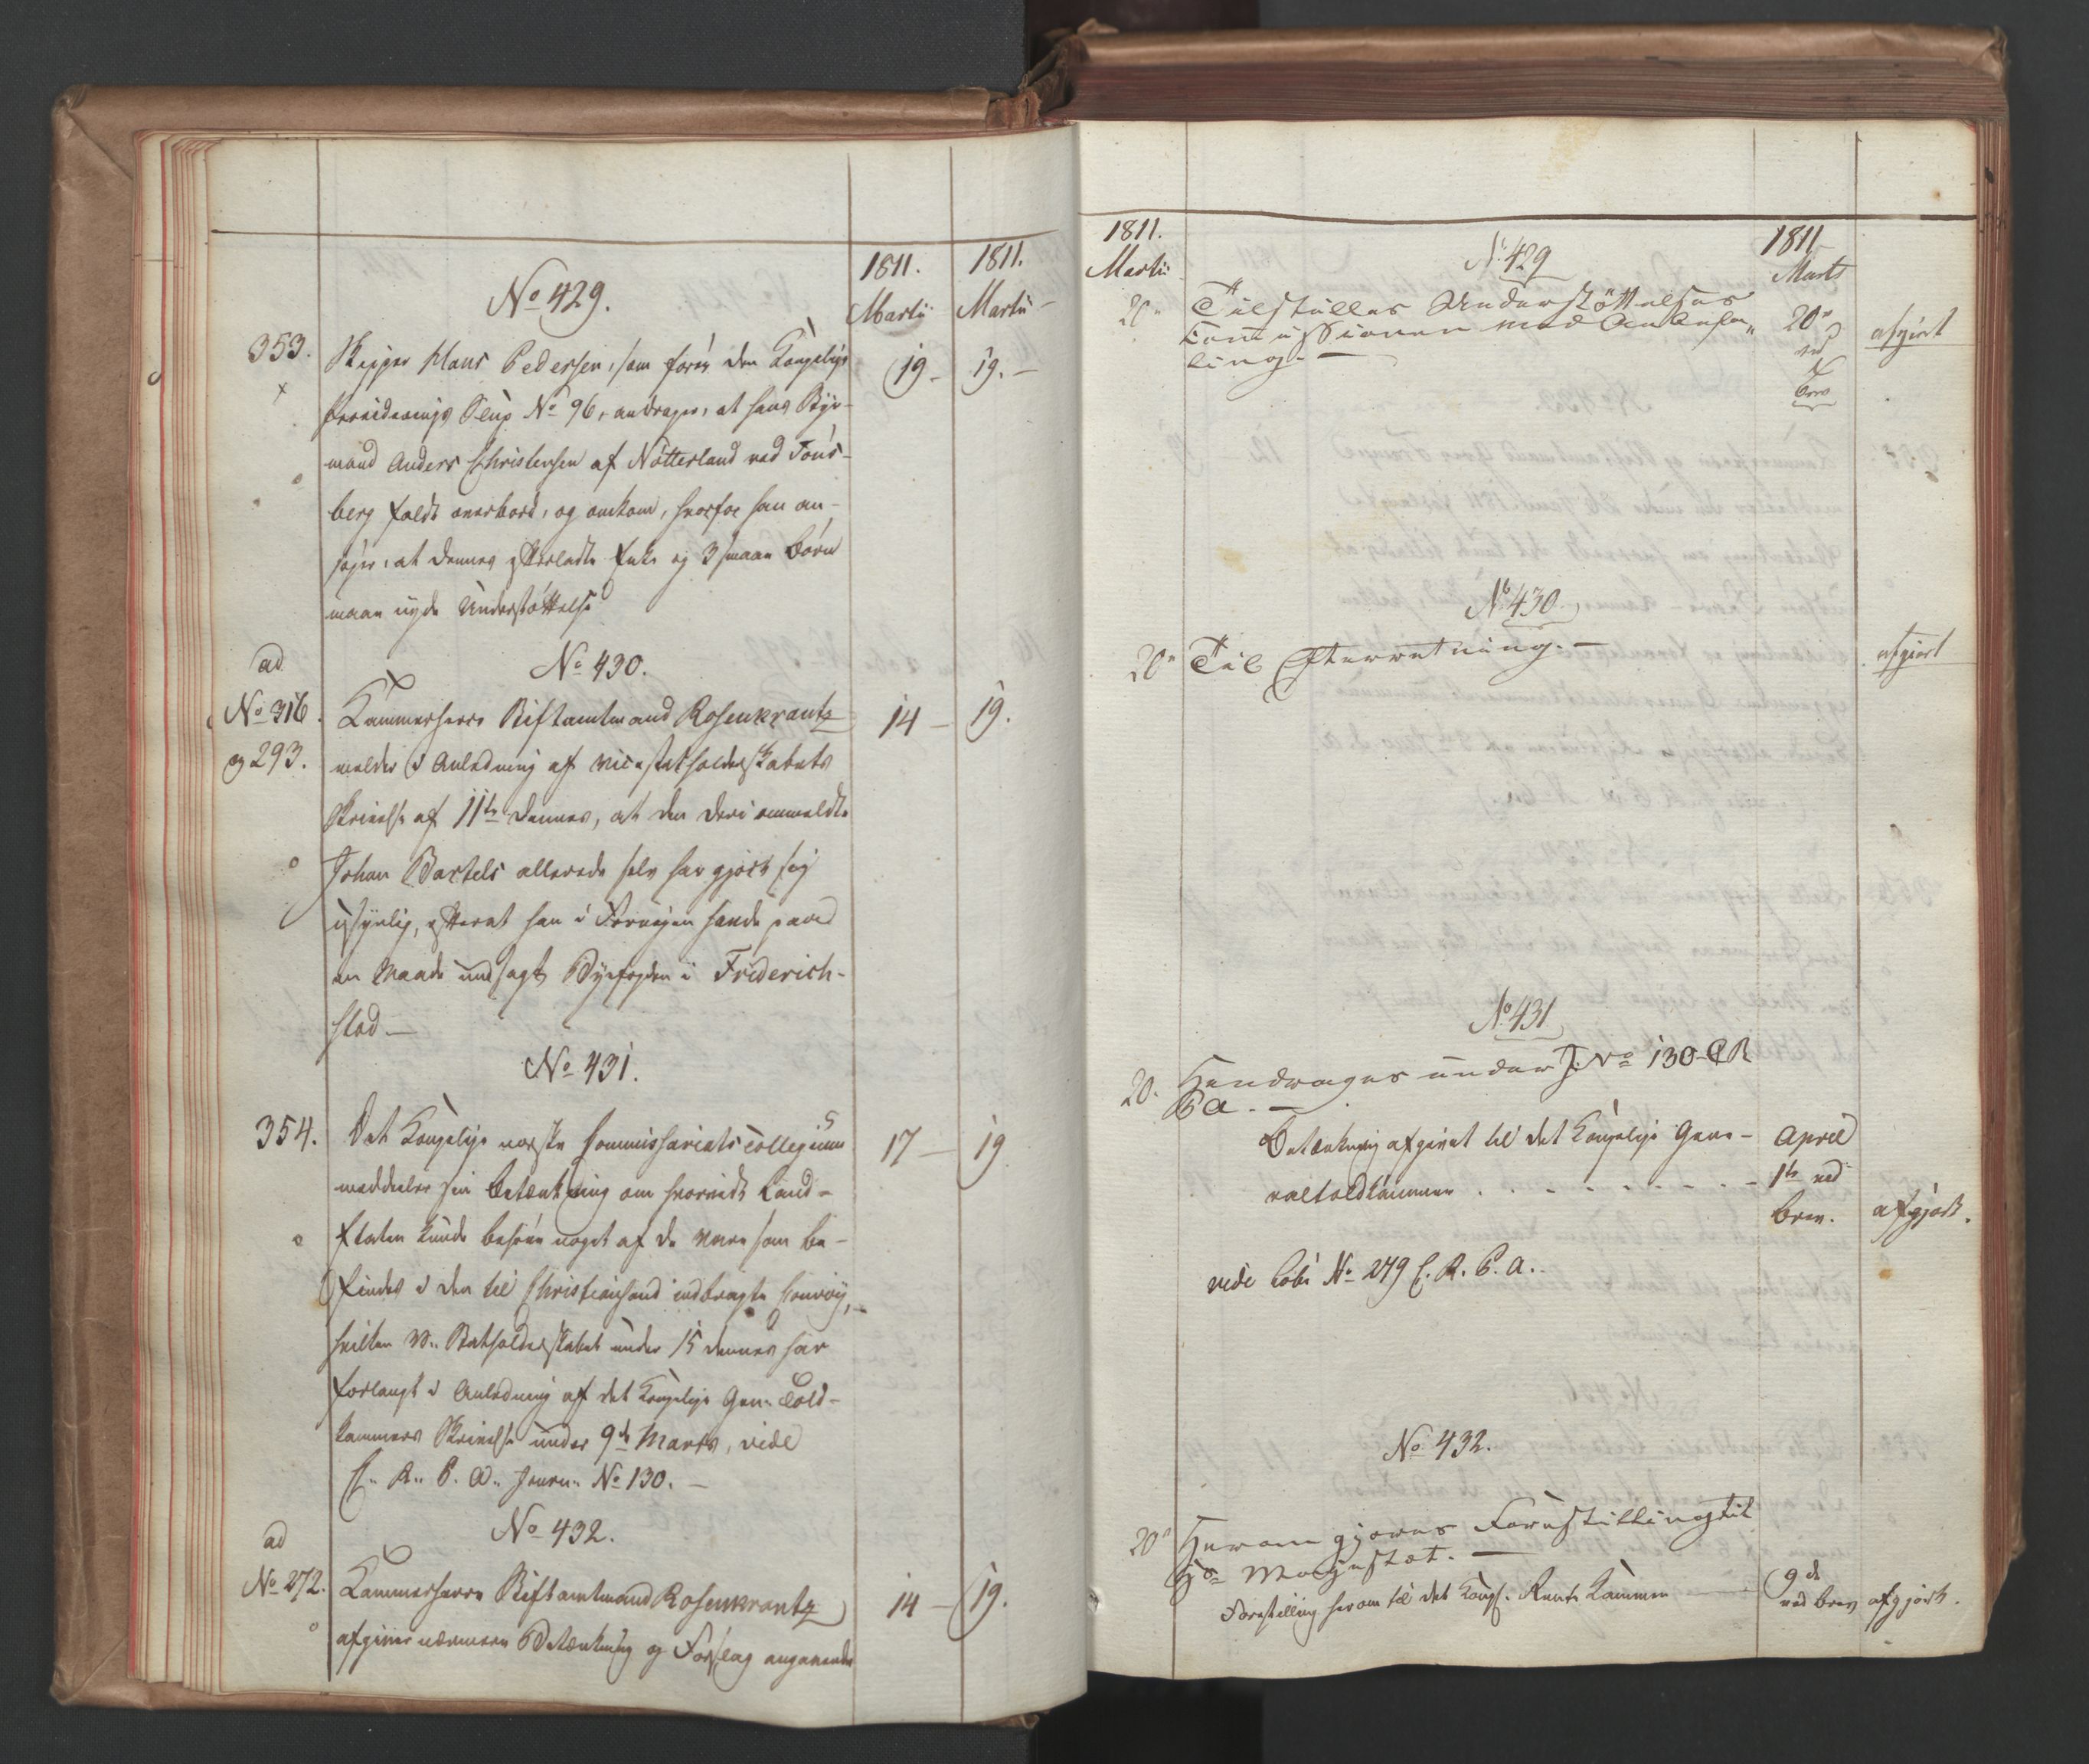 1811.
1811.
No 429.
Martii
Martii
353.
Skipper Hans Pedersen, som fører den Kongelige
19 -
19. -
Provideerings Slup No 96, andrager, at hans Styr-
mand Anders Christensen af Nøtterland ved Tøns-
berg faldt overbord, og omkom, hvorfor han an-
søger, at dennes efterladte Enke og 3 smaae Børn
maae nyde Understøttelse
ad
No 430.
No 316
og 293.
Kammerherre Stiftamtmand Rosenkrantz
14 -
19.
melder i Anledning af Vicestatholderskabets
Skrivelse af 11te dennes, at den deri ommeldte
Johan Bartels allerede selv har gjort sig
usynlig, efterat han i Forveien havde paa
en Maade undsagt Byefogden i Friderich-
stad —
No 431.
354.
Det Kongelige norske Commissariatscollegium
17 -
19
meddeeler sin Betænkning om hvorvidt Land-
Etaten kunde behøve noget af de Varer som be-
findes i den til Christiansand indbragte Convoy,
hvilken V. Statholderskabet under 15 dennes har
forlangt i Anledning af det Kongelige Gen. Told-
kammers Skrivelse under 9de Marts, vide
C. R. P. A. Journ. No 130. —
No 432.
ad
No 272.
Kammerherre Stiftamtmand Rosenkrantz
14 -
19.
afgiver nærmere Betænkning og Forslag angaaende
1811.
Martii
1811
Marts
No 429
20
Tilstilles Understøttelses
Commissionen med Anbefa-
ling. —
20
ved
Brev
afgiort
No 430.
20
Til Efterretning. —
afgiort
No 431
20.
Hendrages under J. No 130 C R
P A. —
Betænkning afgivet til det Kongelige Gene-
raltoldkammer
April
1te ved
Brev.
afgjort.
vide løbe No 279 C. R. P. A.
No 432.
20
Herom gjøres Forestilling til
Hs Majestæt. —
Forestilling herom til det Kongl. Rente Kammer
9de
ved Brev
afgjort.